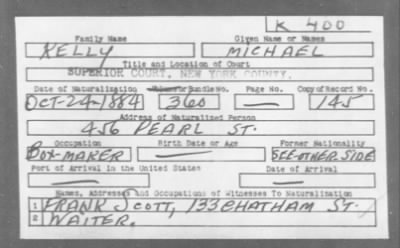 K 400
Family Name Given Name or Names
KELLY MICHAEL
Title and Location of Court
SUPERIOR COURT, NEW YORK COUNTY.
Date of Naturalization Volume or Bundle No. Page No. Copy of Record No.
OCT-24-1884 360 — 145
Address of Naturalized Person
456 PEARL ST.
Occupation Birth Date or Age Former Nationality
BOX-MAKER — SEE-OTHER SIDE
Port of Arrival in the United States Date of Arrival
— —
Names, Addresses and Occupations of Witnesses To Naturalization
1 FRANK SCOTT, 133 CHATHAM ST.
2 WAITER.